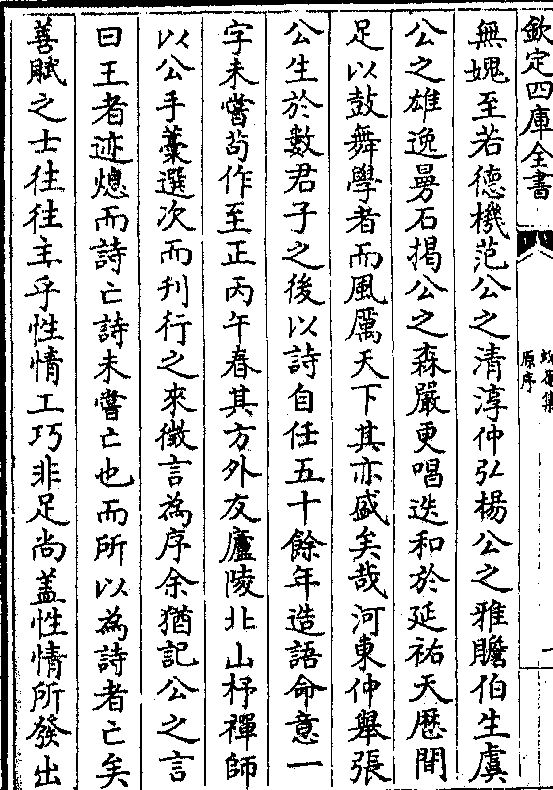 欽定四庫全書
蛻菴集
原序
一
無媿至若德機范公之清淳仲弘楊公之雅贍伯生虞
公之雄逸曼石揭公之森嚴更唱迭和於延祐天厯間
足以鼓舞學者而風厲天下其亦盛矣哉河東仲舉張
公生於數君子之後以詩自任五十餘年造語命意一
字未嘗苟作至正丙午春其方外友廬陵北山杼禪師
以公手藁選次而刋行之來徵言為序余猶記公之言
曰王者迹熄而詩亡詩未嘗亡也而所以為詩者亡矣
善賦之士往往主乎性情工巧非足尚盖性情所發出